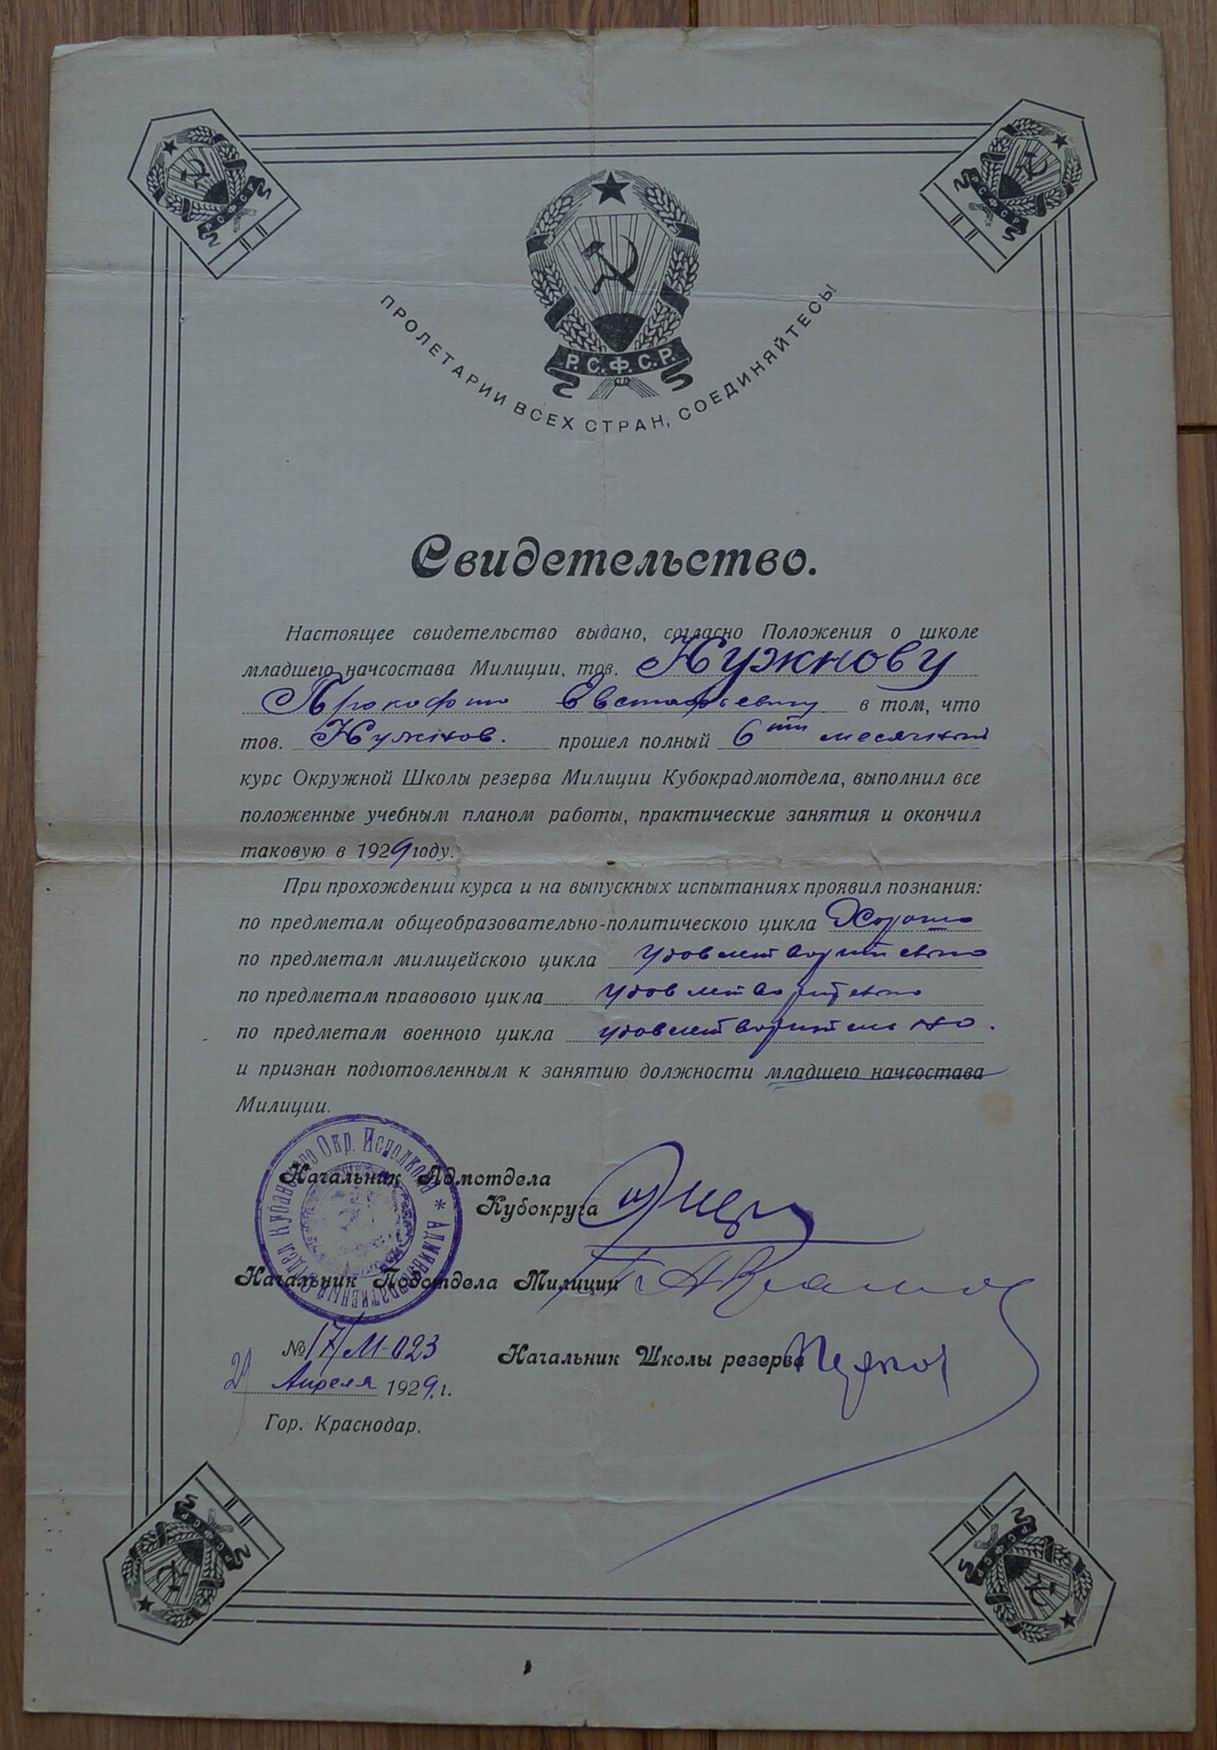 Р.С.Ф.С.Р.
ПРОЛЕТАРИИ ВСЕХ СТРАН, СОЕДИНЯЙТЕСЬ!
Свидетельство.
Настоящее свидетельство выдано, согласно Положения о школе
младшего начсостава Милиции, тов. Нужнову
Прокофию Евстафьевичу в том, что
тов. Нужнов. прошел полный 6ти месячный
курс Окружной Школы резерва Милиции Кубокрадмотдела, выполнил все
положенные учебным планом работы, практические занятия и окончил
таковую в 1929 году.
При прохождении курса и на выпускных испытаниях проявил познания:
по предметам общеобразовательно-политического цикла Хорошо
по предметам милицейского цикла удовлетворительно
по предметам правового цикла удовлетворительно
по предметам военного цикла удовлетворительно.
и признан подготовленным к занятию должности младшего начсостава
Милиции.
Административный Отдел Кубанского Окр. Исполкома *
Начальник Адмотдела
Кубокруга
Начальник Подотдела Милиции
№ 17/М-023
Начальник Школы резерва
29 Апреля 1929 г.
Гор. Краснодар.
Р.С.Ф.С.Р.
Р.С.Ф.С.Р.
Р.С.Ф.С.Р.
Р.С.Ф.С.Р.